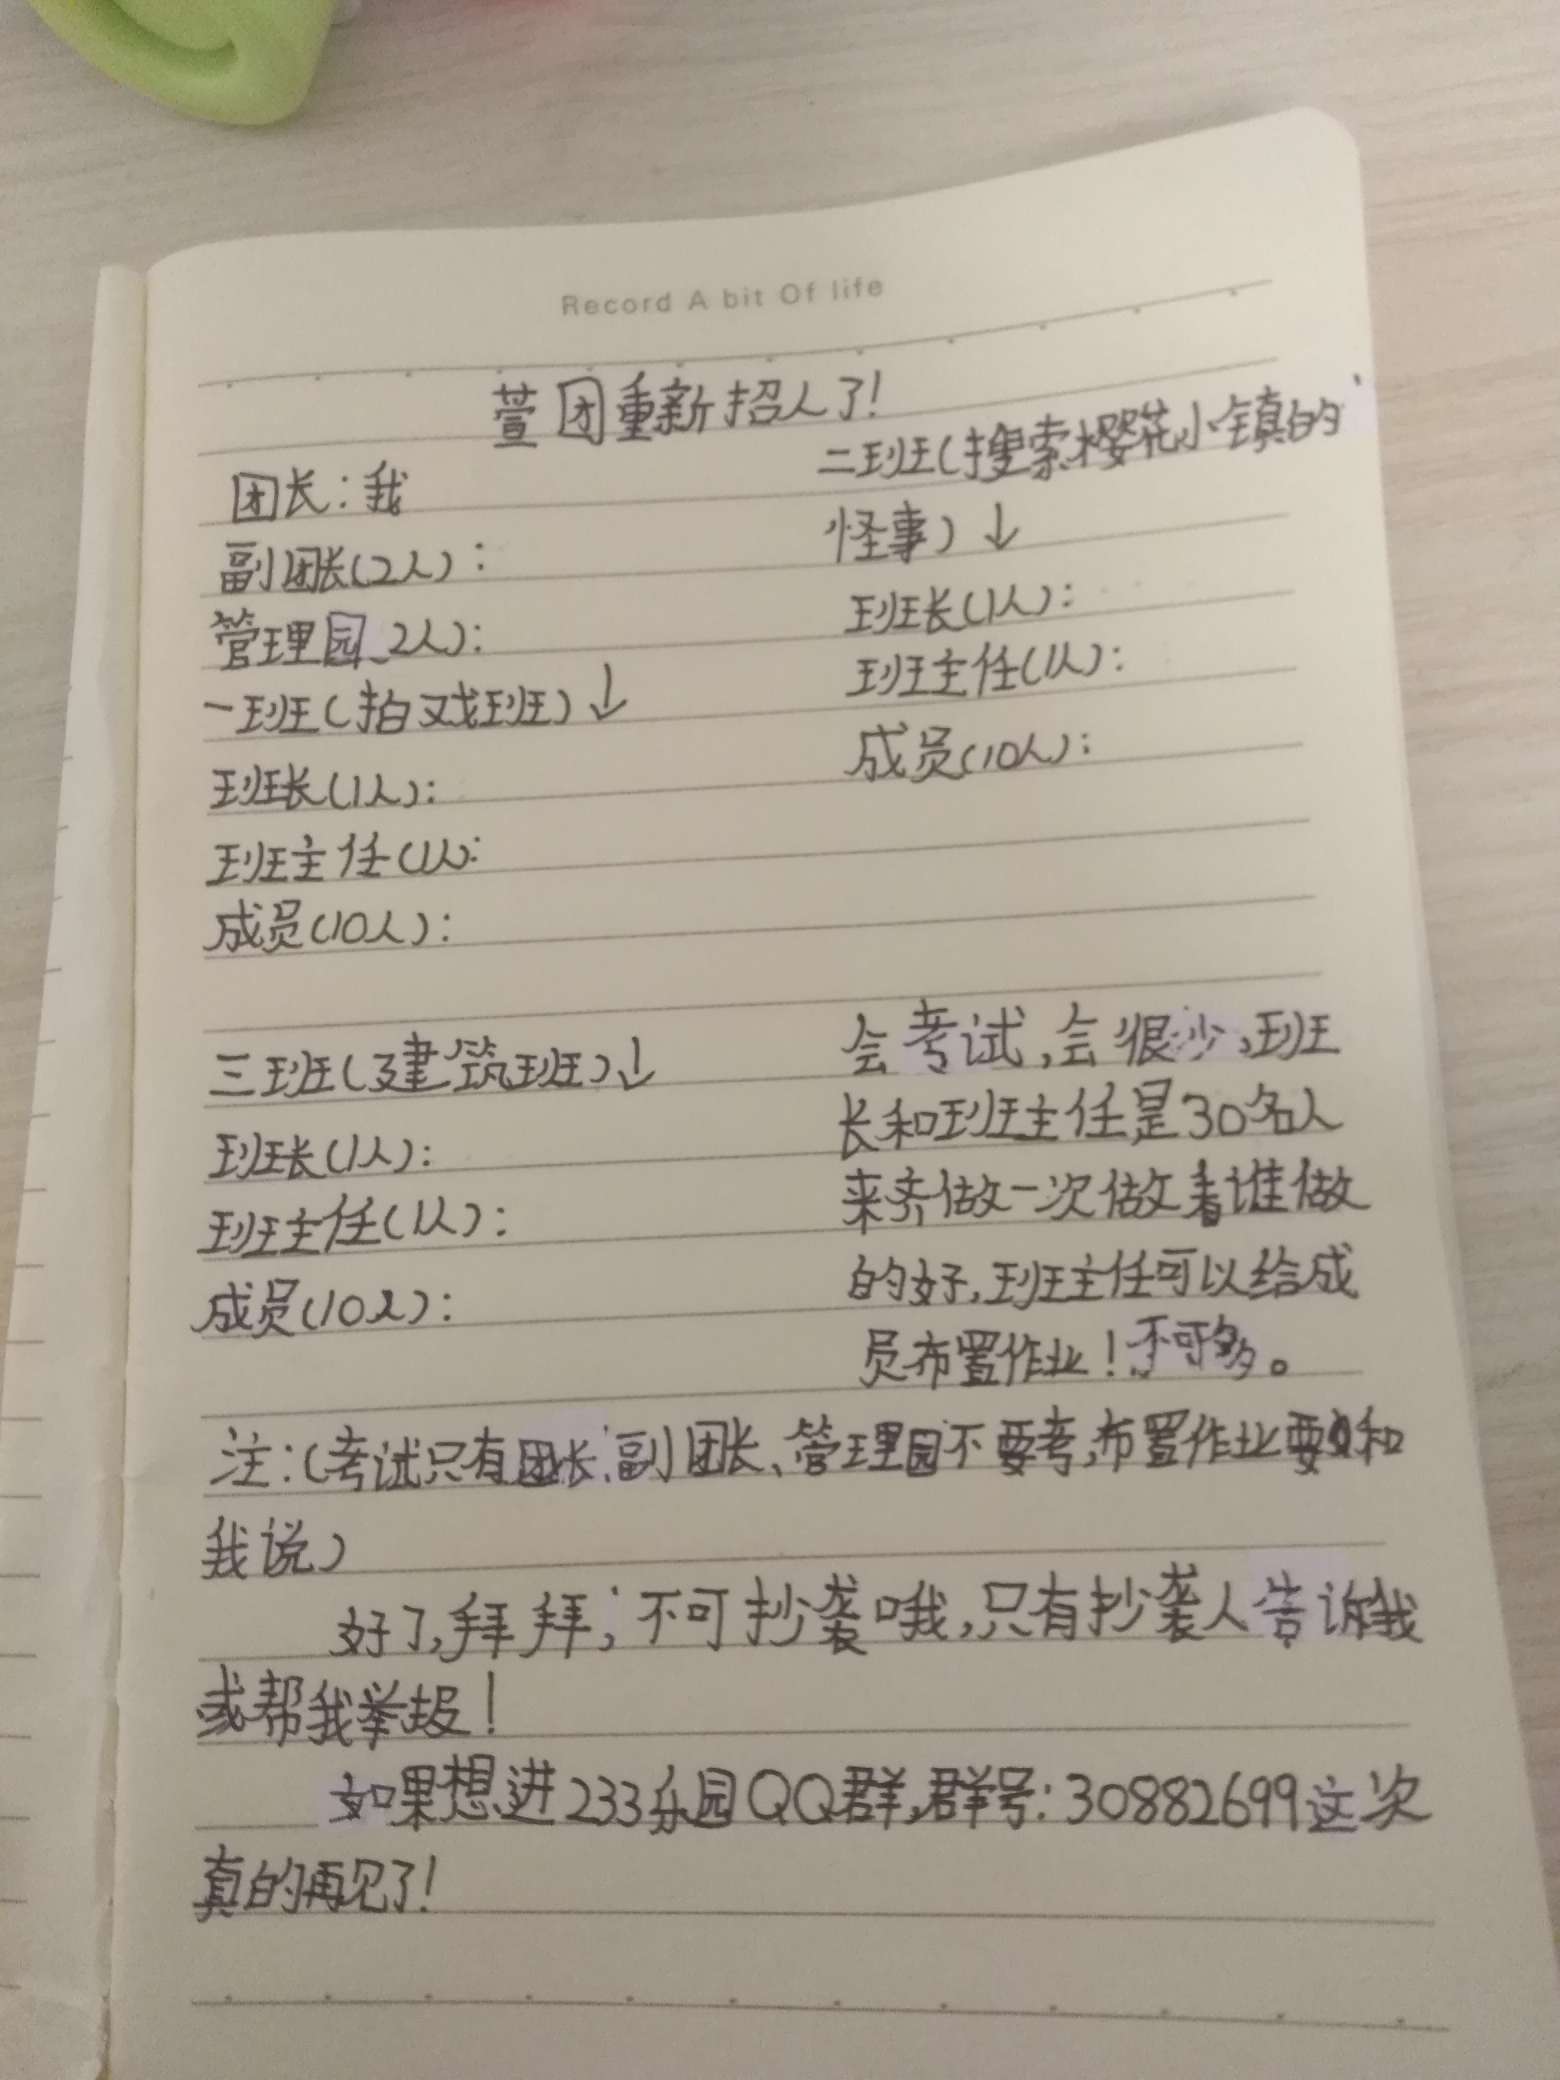 Record A bit Of life
萱团重新招人了!
团长:我
副团长(2人):
管理园 2人):
一班(拍戏班)↓
班长(1人):
班主任(1人):
成员(10人):
二班(搜索樱花小镇的
怪事)↓
班长(1人):
班主任(1人):
成员(10人):
三班(建筑班)↓
班长(1人):
班主任(1人):
成员(10人):
会考试,会很少,班
长和班主任是30名人
来齐做一次做看谁做
的好,班主任可以给成
员布置作业!不可多。
注:(考试只有团长、副团长、管理园不要考,布置作业要和
我说)
好了,拜拜,不可抄袭哦,只有抄袭人告诉我
或帮我举报!
如果想进233乐园QQ群,群号:30882699这次
真的再见了!